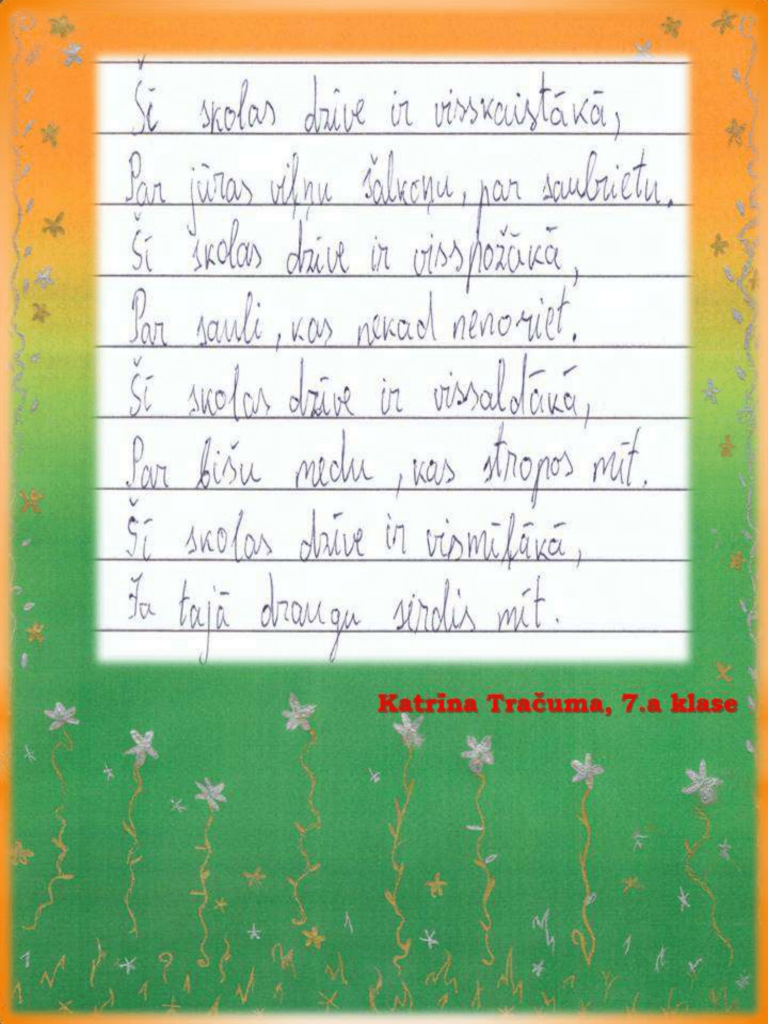 Šī skolas dzīve ir visskaistākā,
Par jūras viļņu šalkoņu, par saulrietu.
Šī skolas dzīve ir visspožākā,
Par sauli, kas nekad nenoriet.
Šī skolas dzīve ir vissaldākā,
Par bišu medu, kas stropos mīt.
Šī skolas dzīve ir vismīļākā,
Ja tajā draugu sirdis mīt.
Katrina Tračuma, 7.a klase